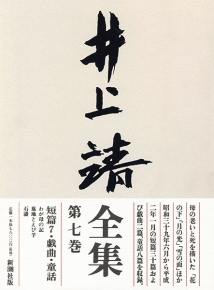 井上靖
全集
第七巻
母の老いと死を描いた「花
の下」「月の光」「雪の面」ほか
昭和三十九年六月から平成
二年一月の短篇三十篇およ
び戯曲二篇、童話八篇を収録。
短篇7・戯曲・童話
わが母の記
墓地とえび芋
石濤
新潮社版